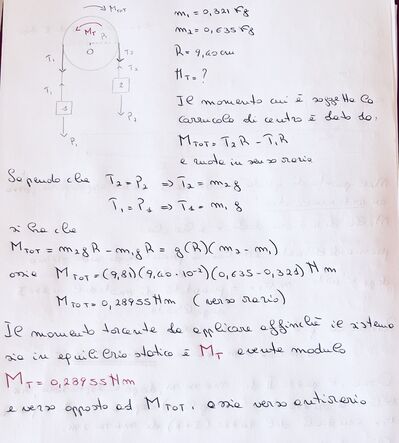 M TOT
m₁ = 0,321 Kg
m₂ = 0,635 Kg
M_T R
R = 9,40 cm
O
T₁ T₂
M_T = ?
T₁ T₂
1 2
Il momento cui è soggetta la
carrucola di centro è dato da:
P₁ P₂
M_TOT = T₂R - T₁R
e ruota in senso orario
Sapendo che T₂ = P₂ ⇒ T₂ = m₂ g
T₁ = P₁ ⇒ T₁ = m₁ g
si ha che
M_TOT = m₂gR - m₁gR = g(R)(m₂ - m₁)
ossia M_TOT = (9,81)(9,40·10⁻²)(0,635-0,321) N m
M_TOT = 0,28955 Nm (verso orario)
Il momento torcente da applicare affinché il sistema
sia in equilibrio statico è M_T avente modulo
M_T = 0,28955 Nm
e verso opposto ad M_TOT, ossia verso antiorario